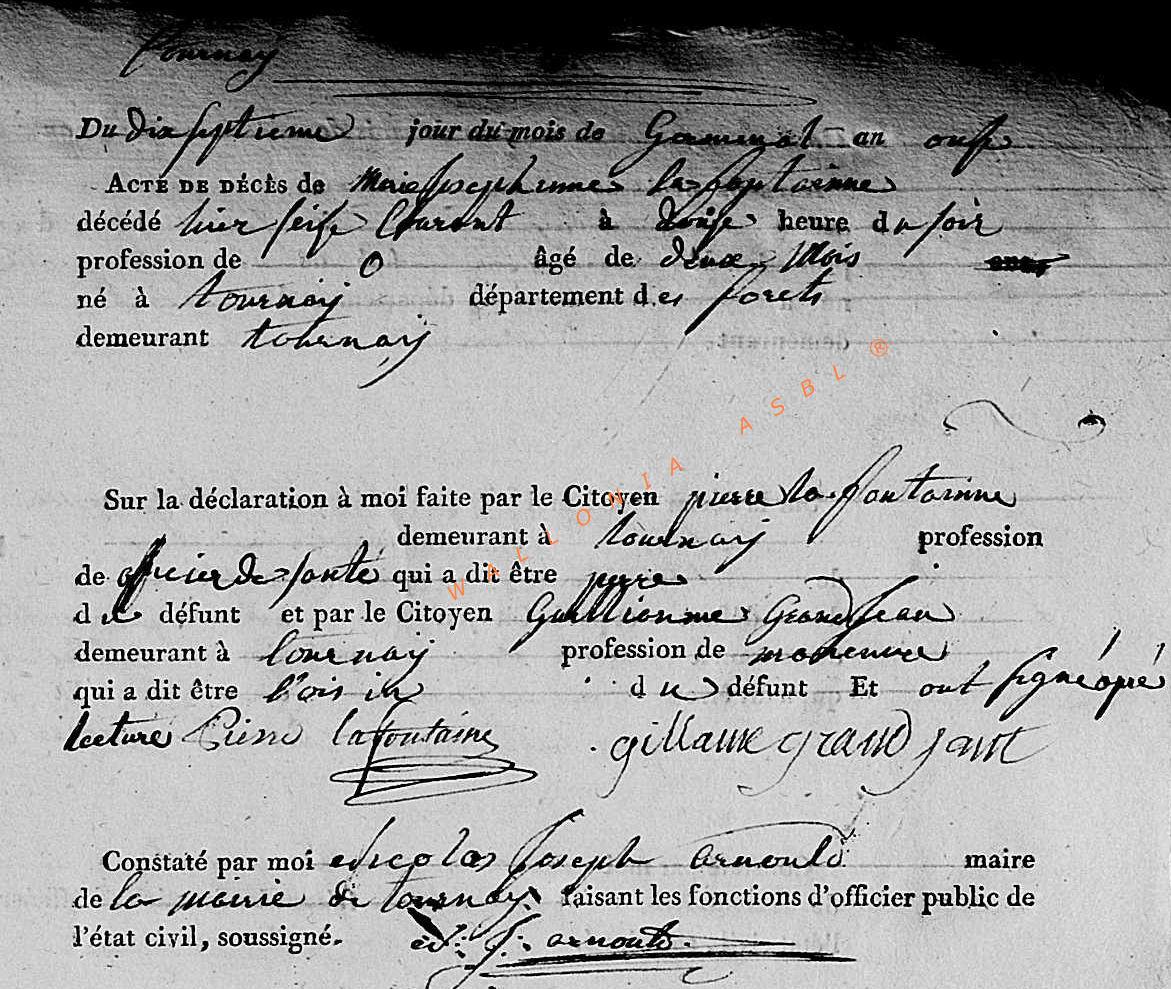 tournay
Du dixseptieme jour du mois de Germinal an onse
ACTE DE DÉCÈS de Marie Josephinne la fontainne
décédé hier seise Courant à douse heure du soir
profession de 0 âgé de deux Mois
né à tournaij département des forets
demeurant tournaij
Sur la déclaration à moi faite par le Citoyen pierre la fontainne
demeurant à tournaij profession
de officier de santé qui a dit être perre
d défunt et par le Citoyen Guillionme Grandjean
demeurant à tournaij profession de maneuvre
qui a dit être voisin du défunt Et ont signé apré
lecture Pierre lafontaine gillaume grand jant
Constaté par moi Nicolas Joseph arnould maire
de la mairie de tournay faisant les fonctions d'officier public de
l'état civil, soussigné. N: J: arnould.
WALLONIA ASBL ®